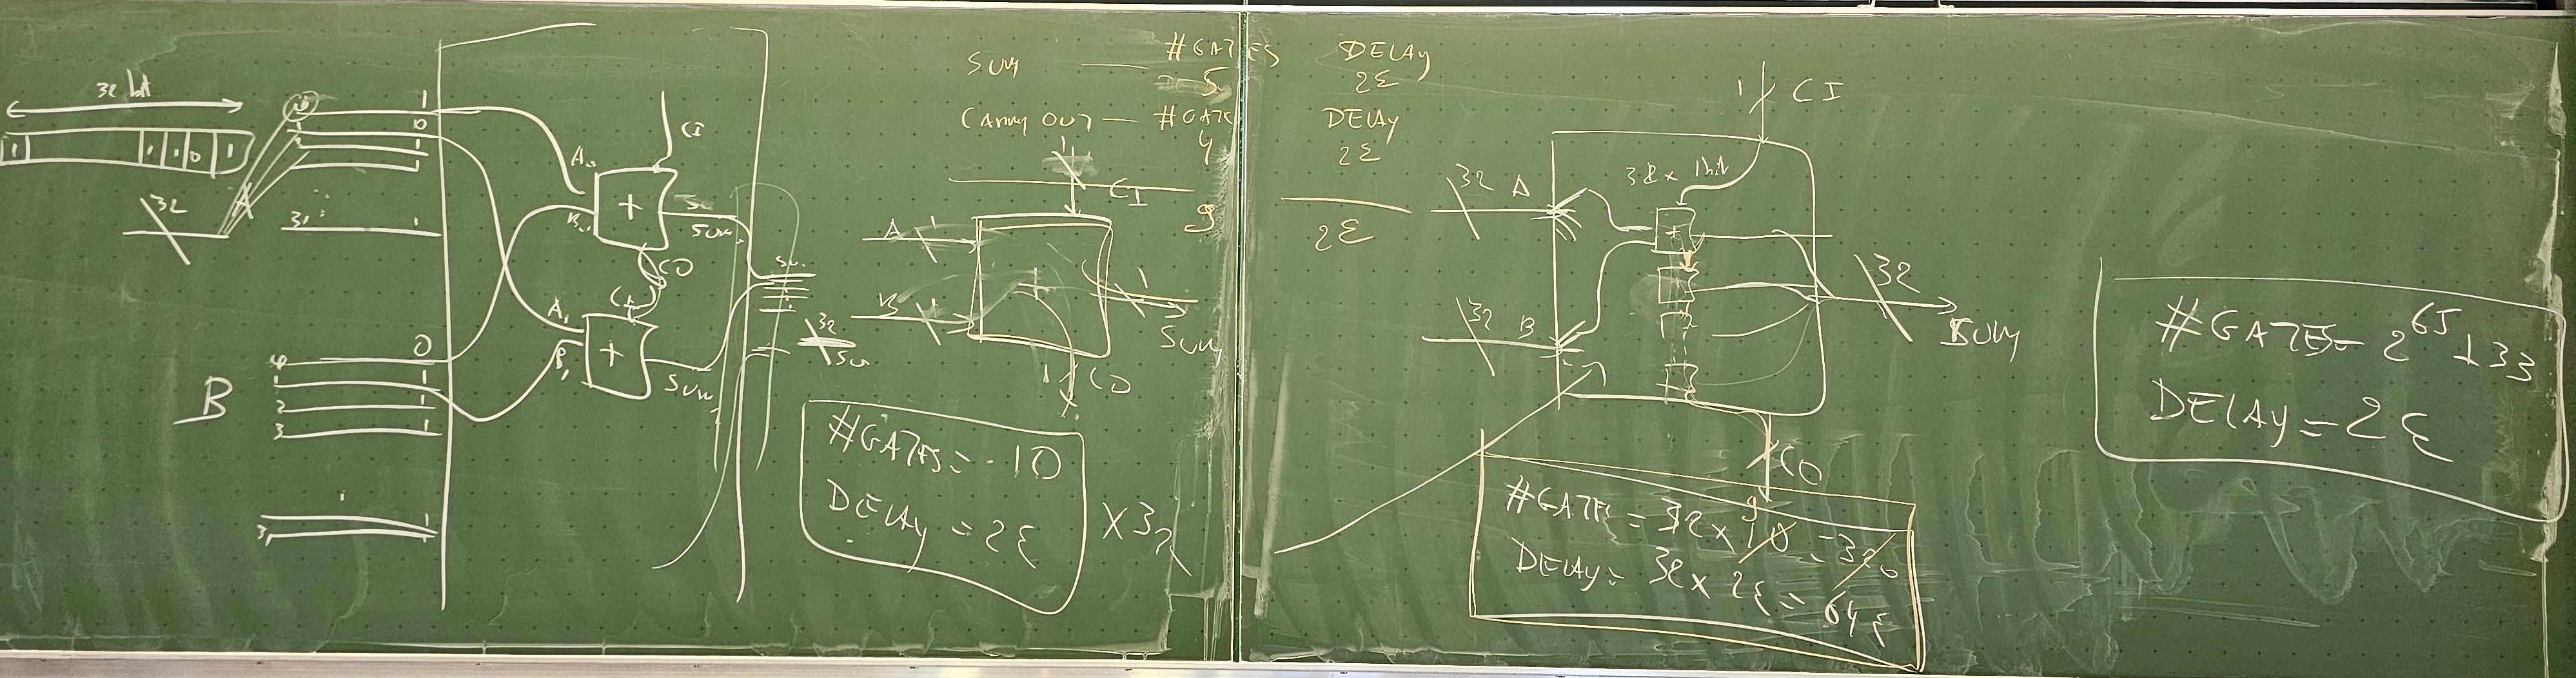 32 bit
1 1 1 0 1
32
0
1
31
1
0
1
1
1
B
0
1
2
3
31
0
1
1
1
1
CI
A₀
B₀
+
Sum₀
CO
CI
A₁
B₁
+
Sum₁
32
SUM — #GATES DELAY
5 2ε
CARRY OUT — #GATES DELAY
4 2ε
9 2ε
1 CI
A 1
B 1
+
1 SUM
1 CO
#GATES = 10
DELAY = 2ε
X32
1 CI
32 A
32 x 1bit
+
32 B
32
SUM
CO
9
#GATES = 32 x 10 = 320
DELAY = 32 x 2ε = 64ε
#GATES = 2^65 + 33
DELAY = 2ε